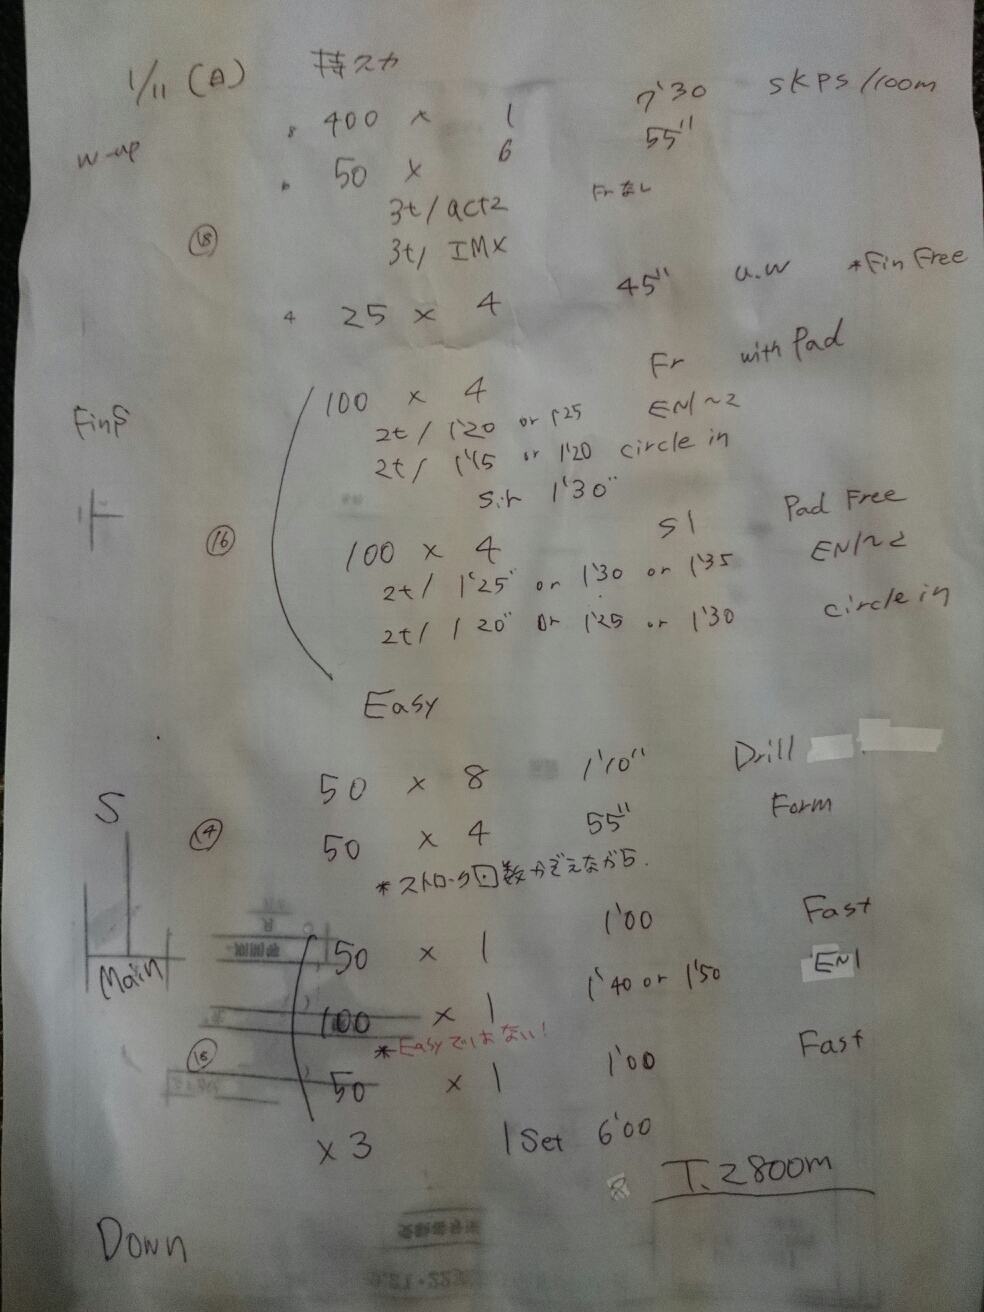 1/11 (日) 持スカ
W-up 8 400 × 1 7'30 SKPS/100m
6 50 × 6 55"
3t/act2 Frなし
3t/ IMX
18
4 25 × 4 45" u.w *Fin Free
Fins 100 × 4 Fr with Pad
2t/ 1'20 or 1'25 EN1~2
2t/ 1'15 or 1'20 circle in
S.h 1'30"
16 100 × 4 S1 Pad Free
2t/ 1'25" or 1'30 or 1'35 EN1~2
2t/ 1'20" or 1'25 or 1'30 circle in
Easy
S 50 × 8 1'10" Drill
14 50 × 4 55" Form
*ストローク回数かぞえながら.
Main 50 × 1 1'00 Fast
100 × 1 1'40 or 1'50 EN1
*Easyではない!
18 50 × 1 1'00 Fast
×3 1 Set 6'00
T. 2800m
Down